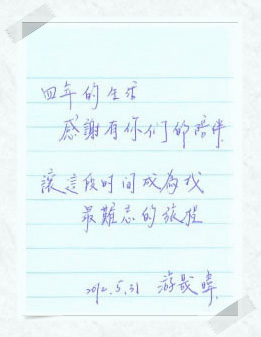 四年的生活
感謝有你们的陪伴.
讓這段时间成為我
最難忘的旅程
2012.5.31 游晟暐.